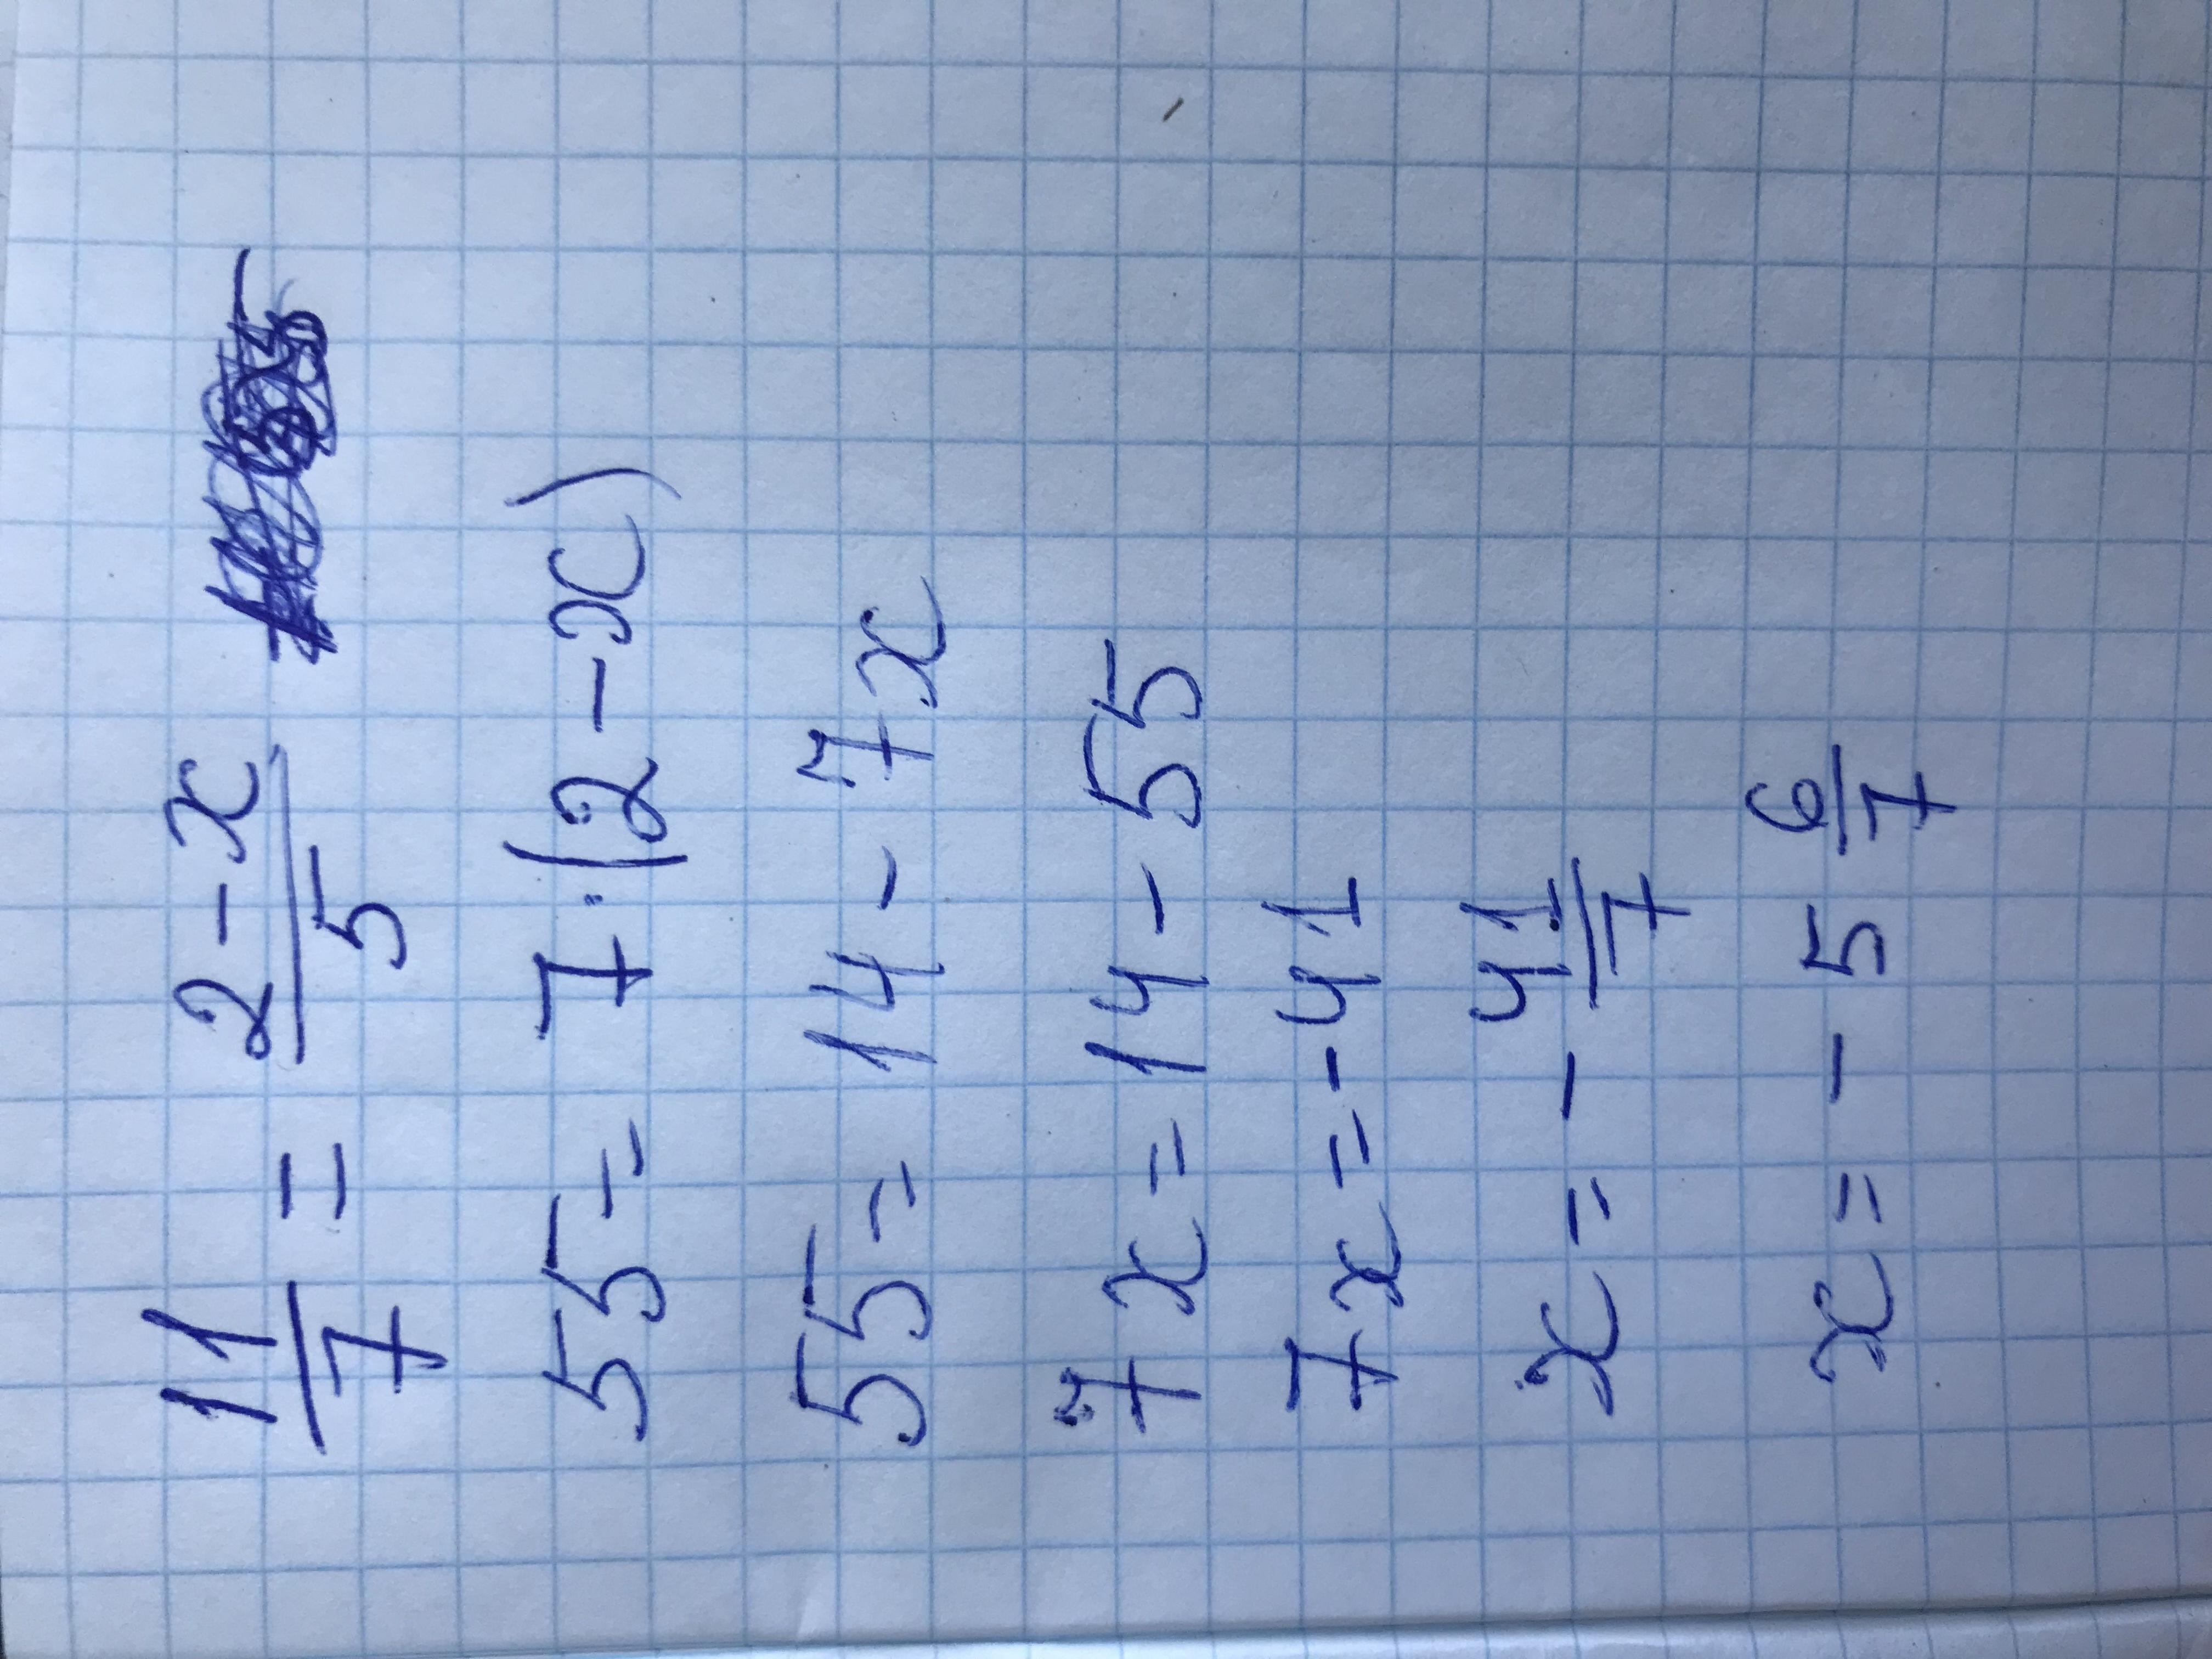 11/7 = 2-x/5
55= 7·(2-x)
55= 14-7x
7x=14-55
7x=-41
x=-41/7
x=-5 6/7